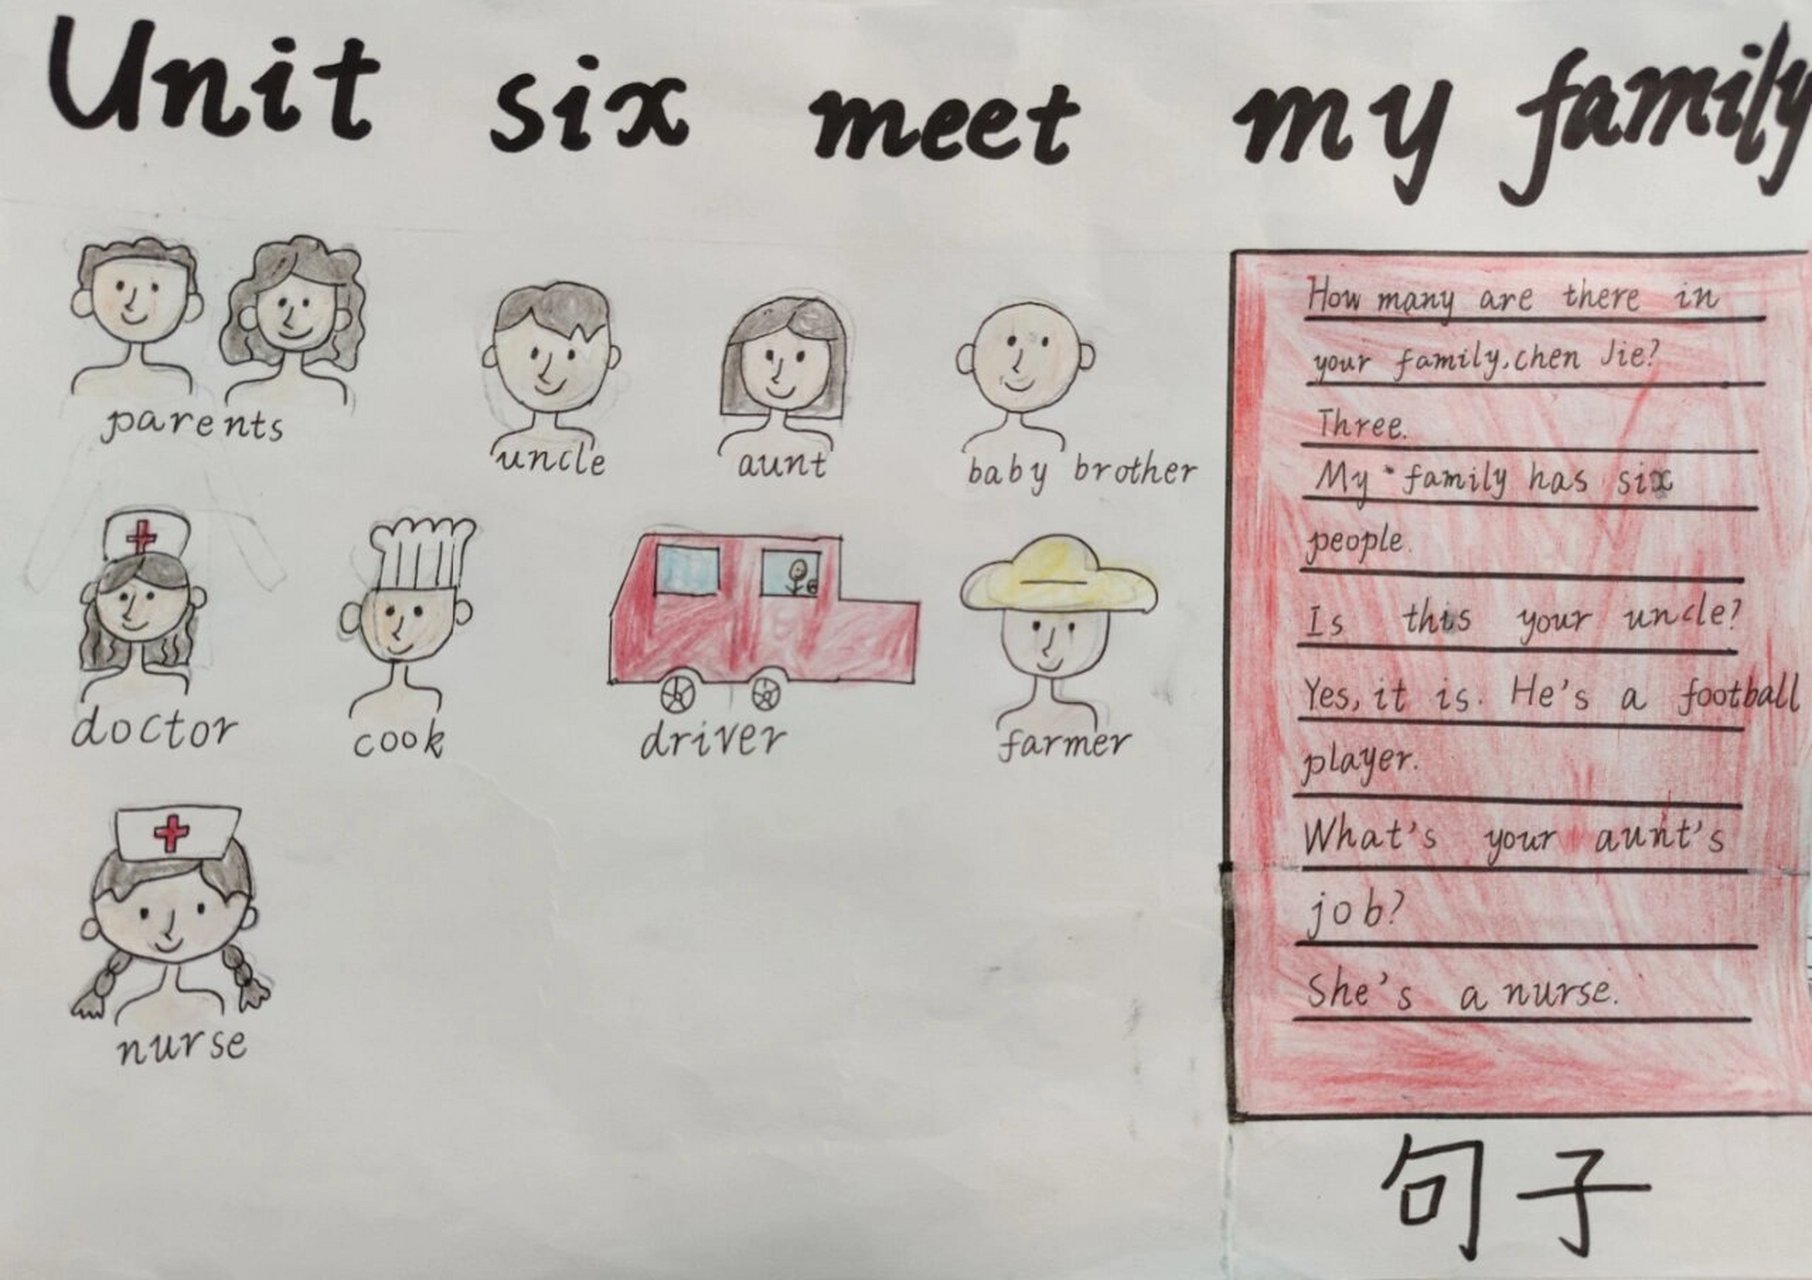 Unit six meet my family
parents
uncle
aunt
baby brother
doctor
cook
driver
farmer
nurse
How many are there in
your family, chen Jie?
Three.
My family has six
people.
Is this your uncle?
Yes, it is. He's a football
player.
What's your aunt's
job?
She's a nurse.
句子